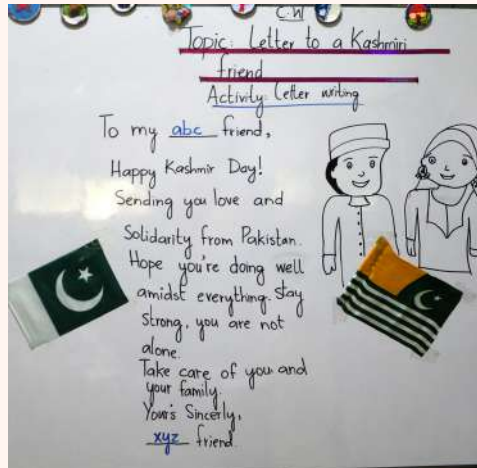 C.W
Topic: Letter to a Kashmiri
friend
Activity: Letter writing
To my abc friend,
Happy Kashmir Day!
Sending you love and
Solidarity from Pakistan.
Hope you're doing well
amidst everything. Stay
strong, you are not
alone.
Take care of you and
your family.
Your's Sincerly,
xyz friend.